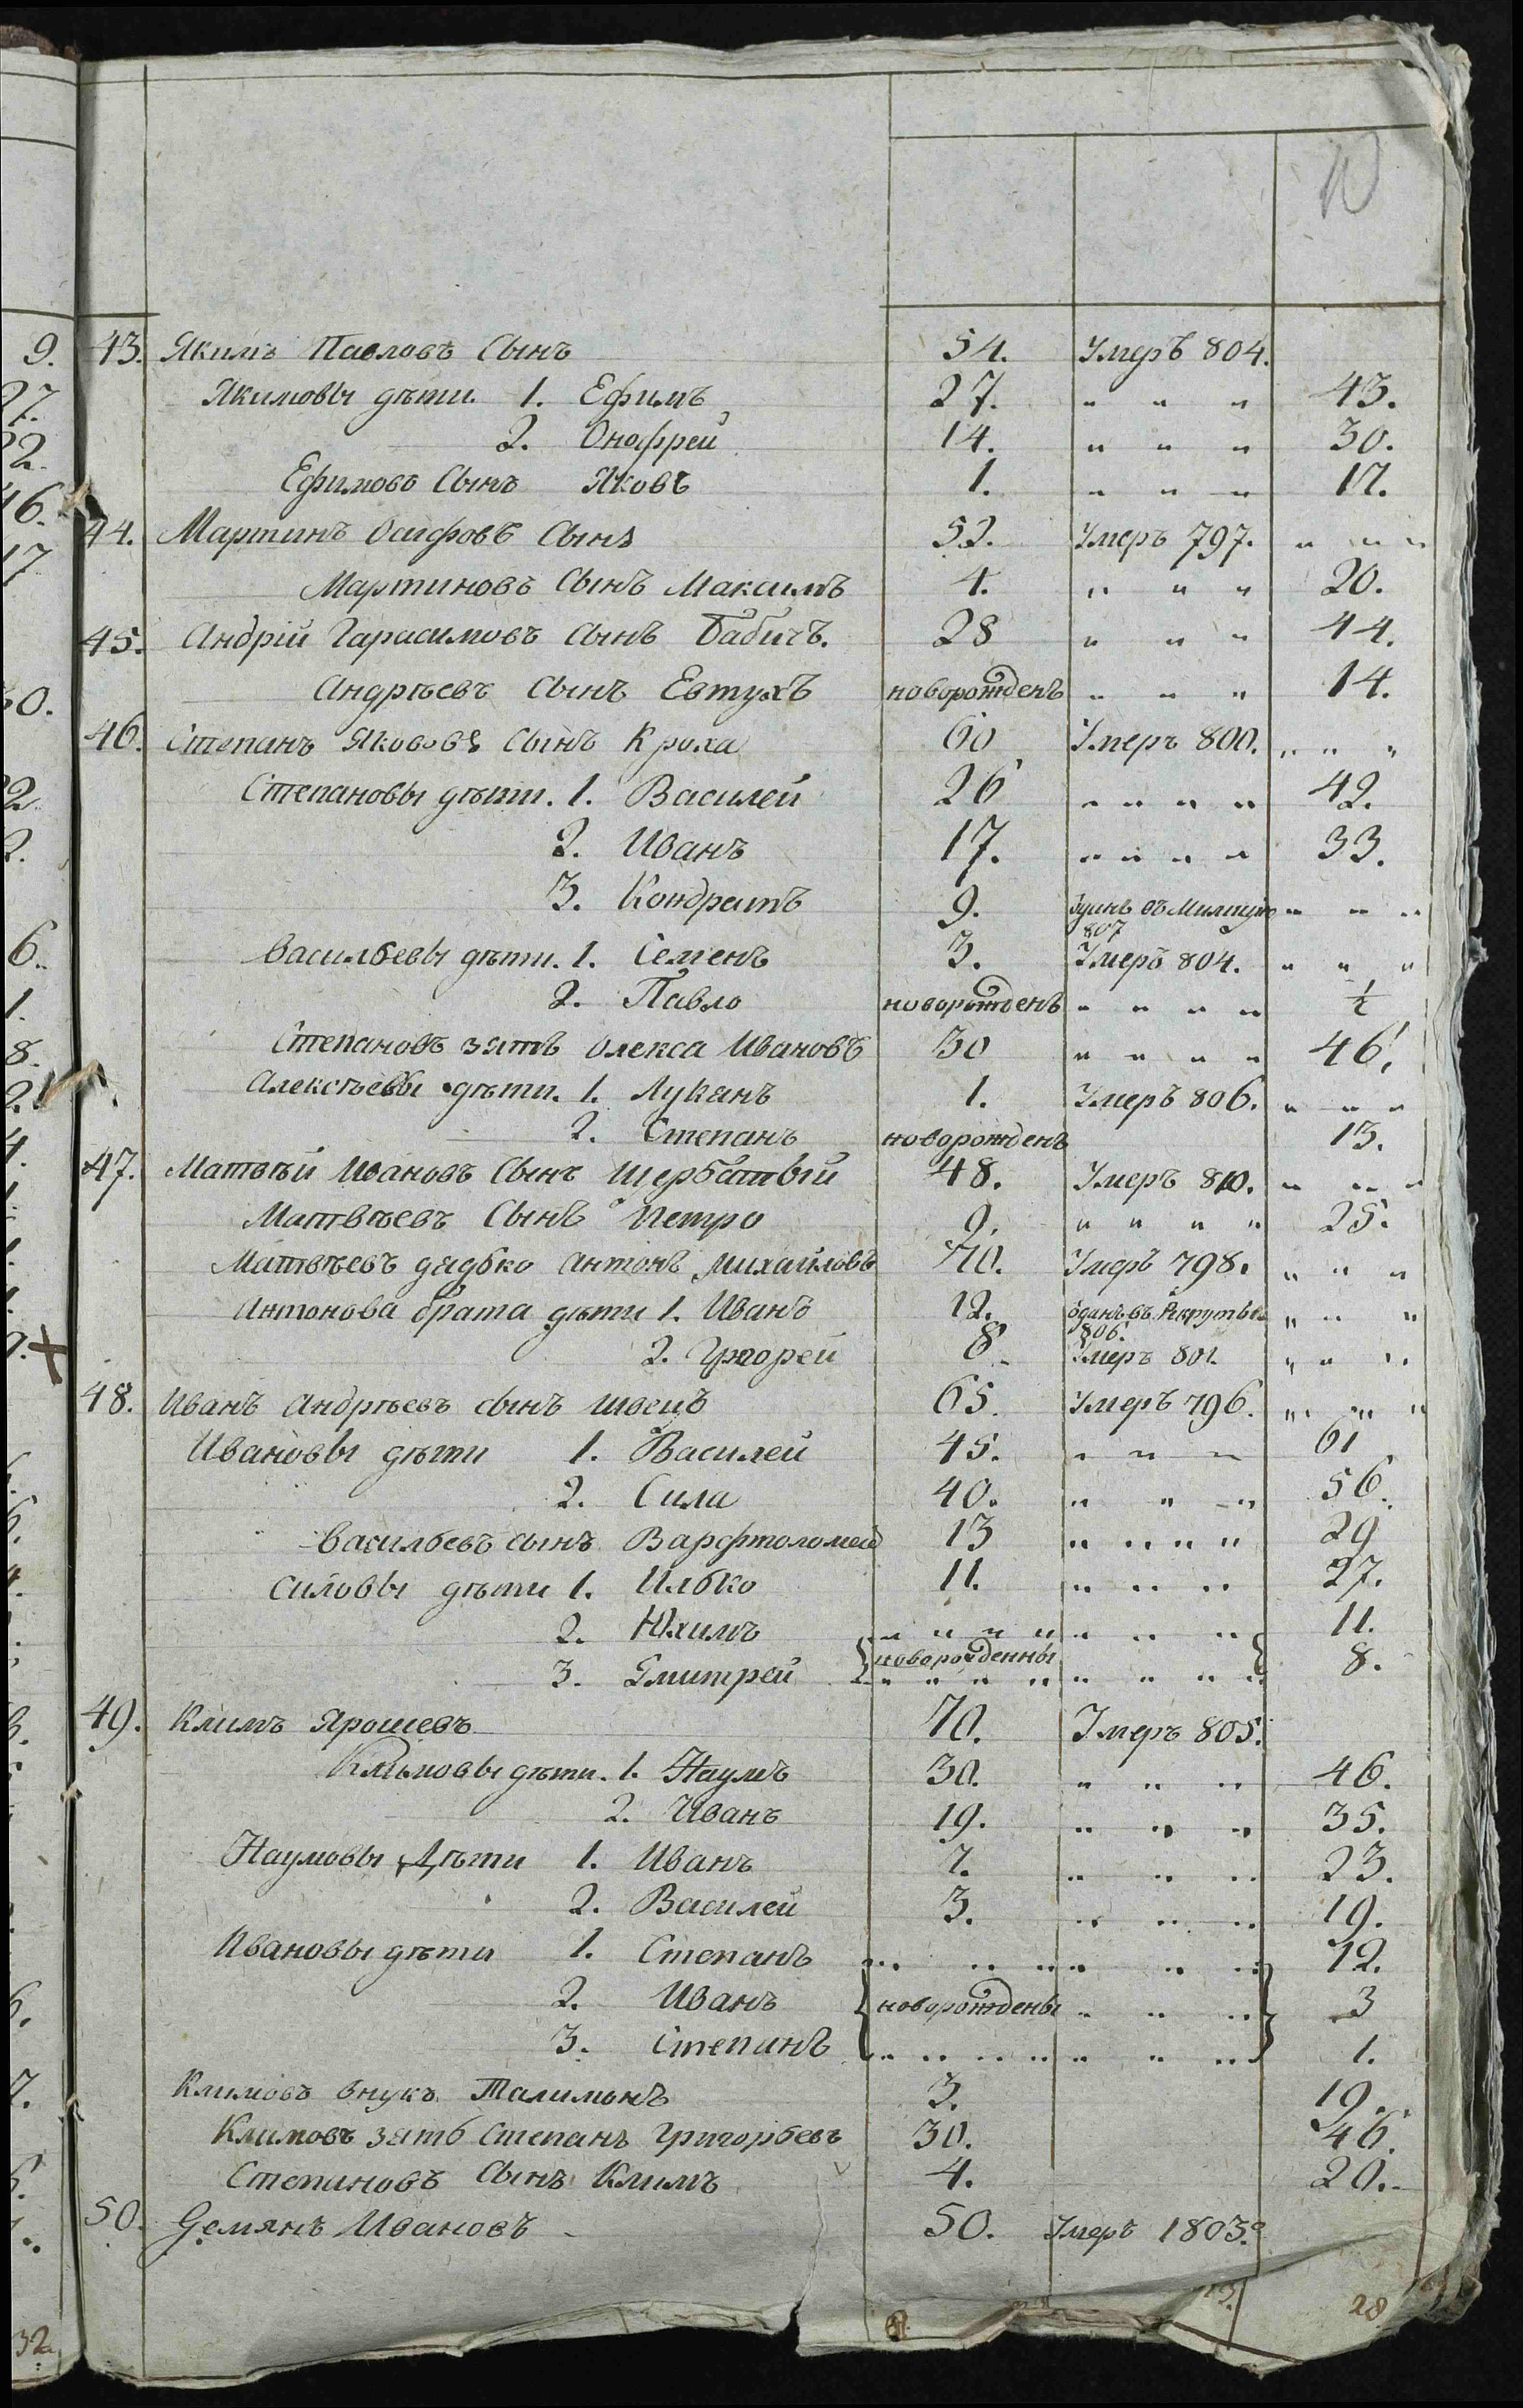 10
43. Якимъ Павловъ Сынъ 54. Умеръ 804.
Якимовы дѣти 1. Ефимъ 27. " " " 43.
2. Онофрей 14. " " " 30.
Ефимовъ Сынъ Яковъ 1. " " " 17.
44. Мартинъ Осифовъ Сынъ 52. Умеръ 797. " " "
Мартиновъ Сынъ Максимъ 4. " " " 20.
45. Андрій Гарасимовъ Сынъ Бабичъ. 28 " " " 44.
Андрѣевъ Сынъ Евтухъ новорожденъ " " " 14.
46. Степанъ Якововъ Сынъ Кроха 60 Умеръ 800. " " "
Степановы дѣти. 1. Василей 26 " " " " 42.
2. Иванъ 17. " " " " 33.
3. Кондратъ 9. въ Милицію " " "
807
Васильевы дѣти. 1. Семенъ 3. Умеръ 804. " " "
2. Павло новорожденъ " " " " ½
Степановъ зять Олекса Ивановъ 30 " " " " 46.
Алексѣевы дѣти. 1. Лукянъ 1. Умеръ 806. " " "
2. Степанъ новорожденъ 13.
47. Матвѣй Ивановъ Сынъ Щербатый 48. Умеръ 810. " " "
Матвѣевъ Сынъ Петро 9. " " " " 25.
Матвѣевъ дядько Антонъ Михайловъ 70. Умеръ 798. " " "
Антонова брата дѣти 1. Иванъ 12. оданъ въ Рекруты " " "
806.
2. Григорей 8. Умеръ 801. " " "
48. Иванъ Андрѣевъ сынъ Швецъ 65. Умеръ 796. " " "
Ивановы дѣти 1. Василей 45. " " " 61
2. Сила 40. " " " 56.
Васильевъ сынъ Варфтоломей 13 " " " " 29
Силовы дѣти 1. Илько 11. " " " 27.
2. Юхимъ " " " " " " " 11.
новорожденны
3. Дмитрей " " " " " " " " 8.
49. Климъ Ярошевъ 70. Умеръ 805.
Климовы дѣти. 1. Наумъ 30. " " " 46.
2. Иванъ 19. " " " 35.
Наумовы Дѣти 1. Иванъ 7. " " " 23.
2. Василей 3. " " " 19.
Ивановы дѣти 1. Степанъ " " " " " " 12.
2. Иванъ новорождены " " " 3
3. Степанъ " " " " " " " 1.
Климовъ внукъ Талимонъ 3. 19.
Климовъ зять Степанъ Григорьевъ 30. 46.
Степановъ Сынъ Климъ 4. 20.
50. Демянъ Ивановъ 50. Умеръ 1803.
28